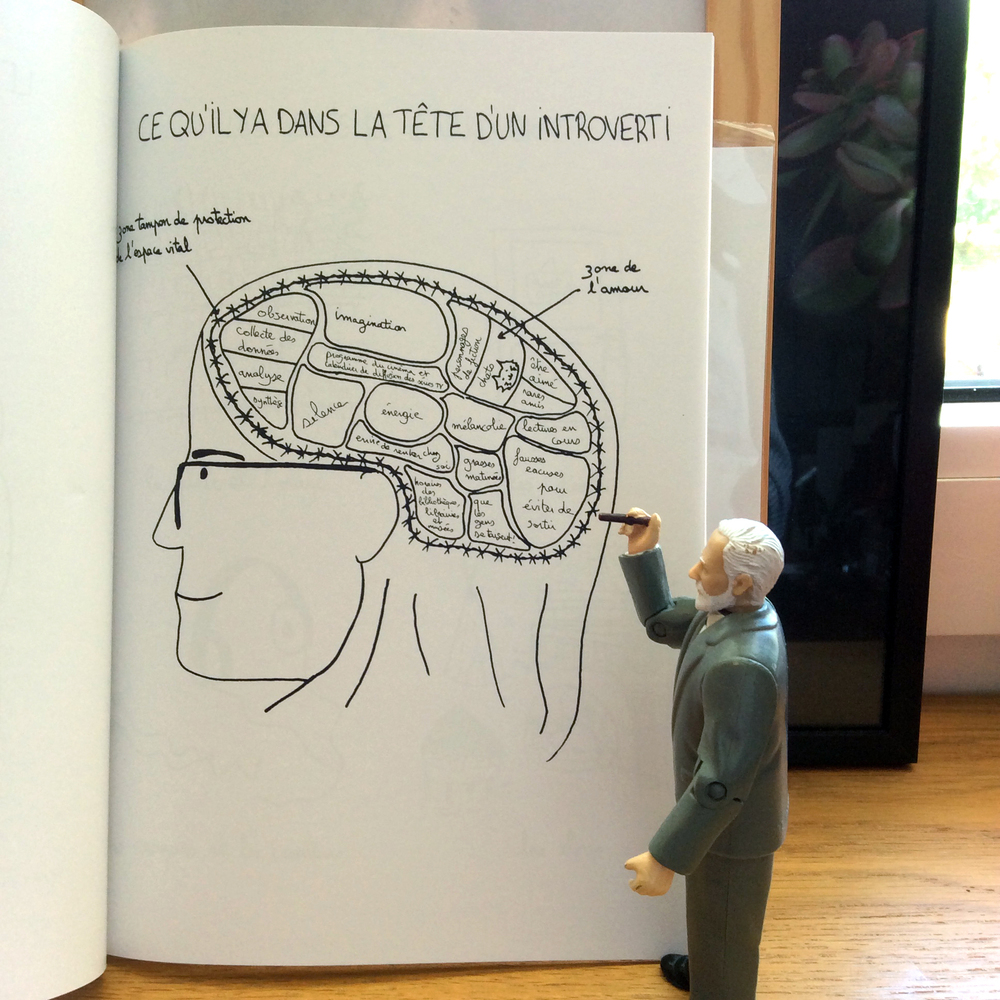 CE QU'IL Y A DANS LA TÊTE D'UN INTROVERTI
zone tampon de protection
de l'espace vital
zone de
l'amour
observation
collecte des
données
analyse
synthèse
imagination
programme du cinéma et
calendrier de diffusion des séries TV
silence
énergie
personnages
de fiction
chats
être
aimé
rares
amis
mélancolie
lectures en
cours
envie de rentrer chez
soi
grasses
matinées
fausses
excuses
pour
éviter de
sortir
horaires
des
bibliothèques,
librairies
et
musées
que
les
gens
se taisent!